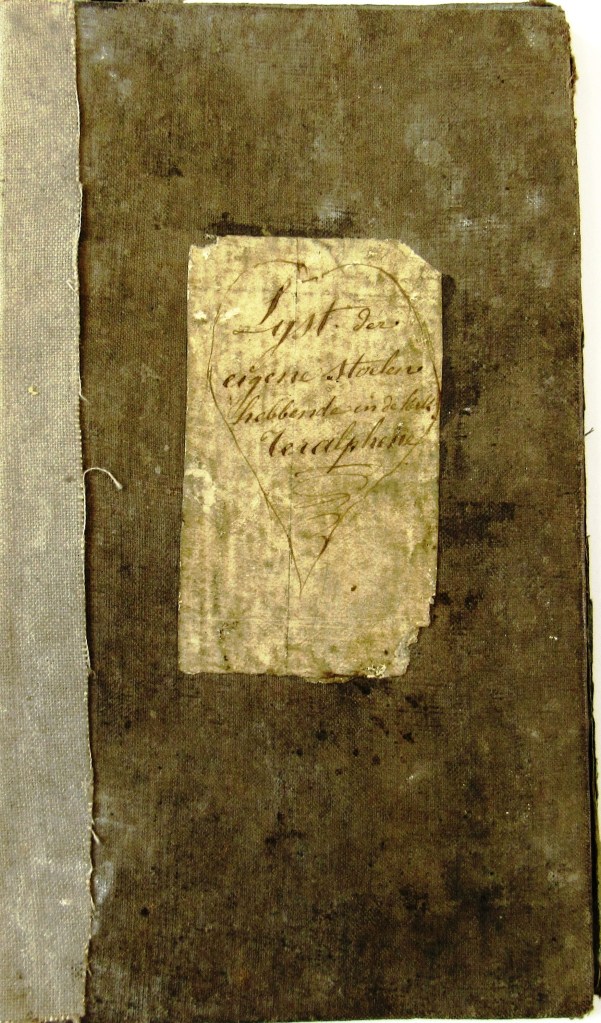 Lyst. der
eigene stoelen
hebbende in de kerk
Teralphene